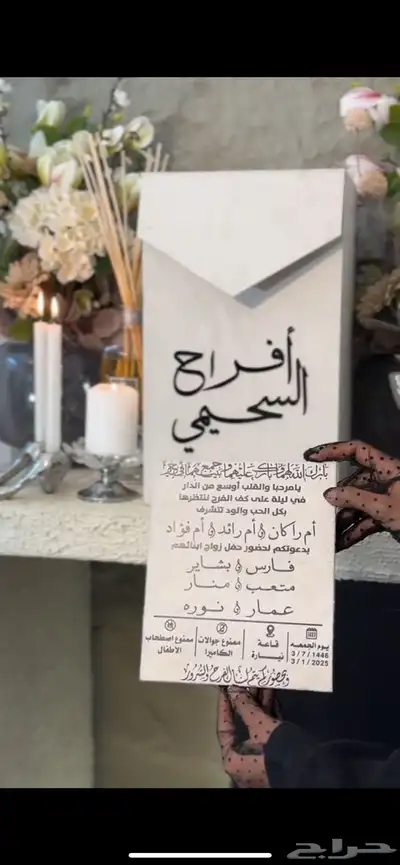 أفراح
السحيمي
بارك الله لهما وبارك عليهما وجمع بينهما في خير
يامرحبا والقلب أوسع من الدار
في ليلة على كف الفرح ننتظرها
بكل الحب والود تتشرف
أم راكان & أم رائد & أم فؤاد
بدعوتكم لحضور حفل زواج ابنائهم
فارس & بشاير
متعب & منار
عمار & نوره
يوم الجمعه
3 / 7 / 1446
3 / 1 / 2025
قاعة
نيارة
ممنوع جوالات
الكاميرا
ممنوع اصطحاب
الأطفال
وبحضوركم يتم لنا الفرح والسرور
حراج